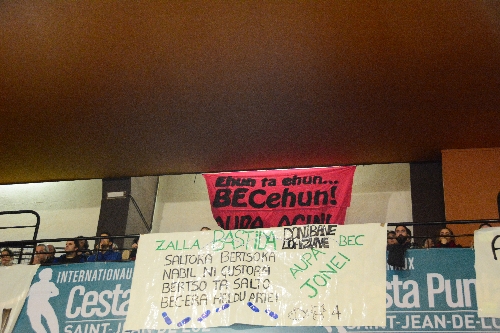 Ehun ta ehun...
BECehun!
AUPA AGIN!
ZALLA BASTIDA DONIBANE LOHIZUNE BEC
SALTOKA BERTSOKA
NABIL NI GUSTORA
BERTSO TA SALTO
BECERA
AUPA
JONE!
INTERNATIONAUX
Cesta
SAINT-JEAN-DE
UX
Cesta Pun
ST-JEAN-DE-LU